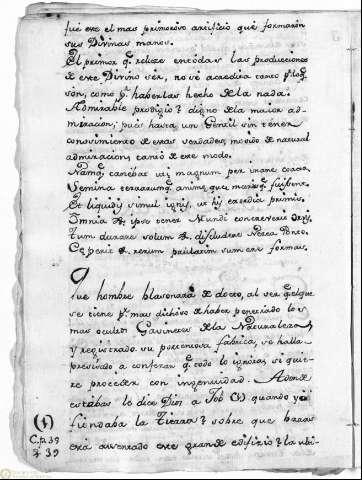 fué este el mas primoroso artificio que formaron
sus Divinas manos.
El primor q.e reluze en todas las producciones
de este Divino ser, no se acredita tanto p.r lo q.e
son, como p.r haberlas hecho de la nada.
Admirable prodigio! digno de la maior ad-
miracion; pues hasta un Gentil sin tener
conosimiento de estas verdades, movido de natural
admiracion, cantó de este modo.
Namq. canebat uti magnum per inane coacta
Semina terrarumq. animæ, que, marisq. fuissent
Et liquidi simul ignis, ut his exordia primis
Omnia & ipse tener Mundi concreverit Orbis,
Tum durare solum & discludere Nerea Ponto.
Ceperit & rerum paulatim sumere formas.
Que hombre blasonará de docto, al ver q.e el que
se tiene p.r mas dichoso de haber penetrado los
mas ocultos Gavinetes de la Naturaleza,
y registrado su portentosa fabrica, se halla
presisado a confesar q.e todo lo ignora, si quie-
re proceder con ingenuidad. Adonde
estabas le dice Dios a Job (1) quando yo
fundaba la Tierra? sobre que basas
está asentado este grande edificio? la ubi-
(1)
Cap. 39
39